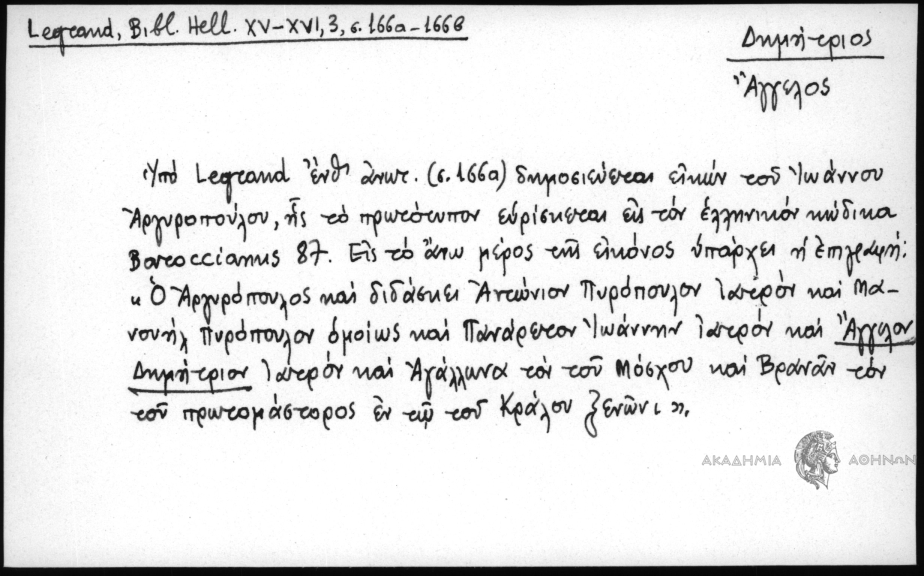 Legrand, Bibl. Hell. XV–XVI, 3, σ. 166α–166β
Δημήτριος
Ἄγγελος
Ὑπὸ Legrand ἔνθ' ἀνωτ. (σ. 166α) δημοσιεύεται εἰκὼν τοῦ Ἰωάννου
Ἀργυροπούλου, ἧς τὸ πρωτότυπον εὑρίσκεται εἰς τὸν ἑλληνικὸν κώδικα
Baroccianus 87. Εἰς τὸ ἄνω μέρος τῆς εἰκόνος ὑπάρχει ἡ ἐπιγραφή:
« Ὁ Ἀργυρόπουλος καὶ διδάσκει Ἀντώνιον Πυρόπουλον ἰατρὸν καὶ Μα-
νουὴλ Πυρόπουλον ὁμοίως καὶ Πανάρετον Ἰωάννην ἰατρὸν καὶ Ἄγγελον
Δημήτριον ἰατρὸν καὶ Ἀγάλλωνα τὸν τοῦ Μόσχου καὶ Βρανᾶν τὸν
τοῦ πρωτομάστορος ἐν τῷ τοῦ Κράλου ξενῶνι ».
ΑΚΑΔΗΜΙΑ ΑΘΗΝΩΝ